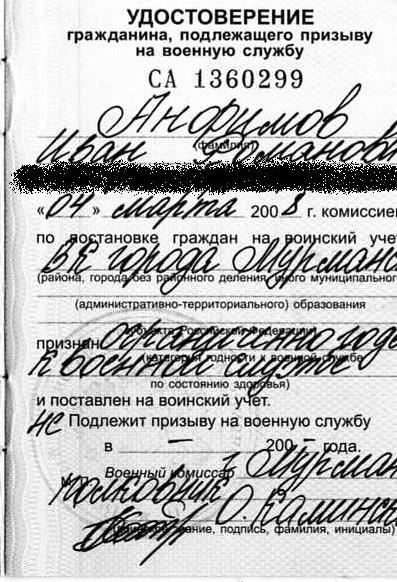 УДОСТОВЕРЕНИЕ
гражданина, подлежащего призыву
на военную службу
СА 1360299
Анфимов
(фамилия)
Иван Романович
«04» марта 2008 г. комиссией
по постановке граждан на воинский учет
ВК города Мурманск
(района, города без районного деления, иного муниципального
(административно-территориального) образования
субъекта Российской Федерации)
признан ограниченно годен
(категория годности к военной службе
к военной службе
по состоянию здоровья)
и поставлен на воинский учет.
НЕ Подлежит призыву на военную службу
в — 200 – года.
Военный комиссар г. Мурманск
М.П. Полковник
О. Камински
(воинское звание, подпись, фамилия, инициалы)